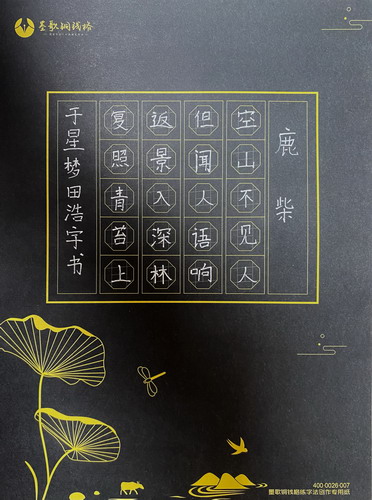 墨歌铜钱路
鹿柴
空山不见人
但闻人语响
返景入深林
复照青苔上
于星梦田浩字书
400-0026-007
墨歌铜钱路练字法创作专用纸